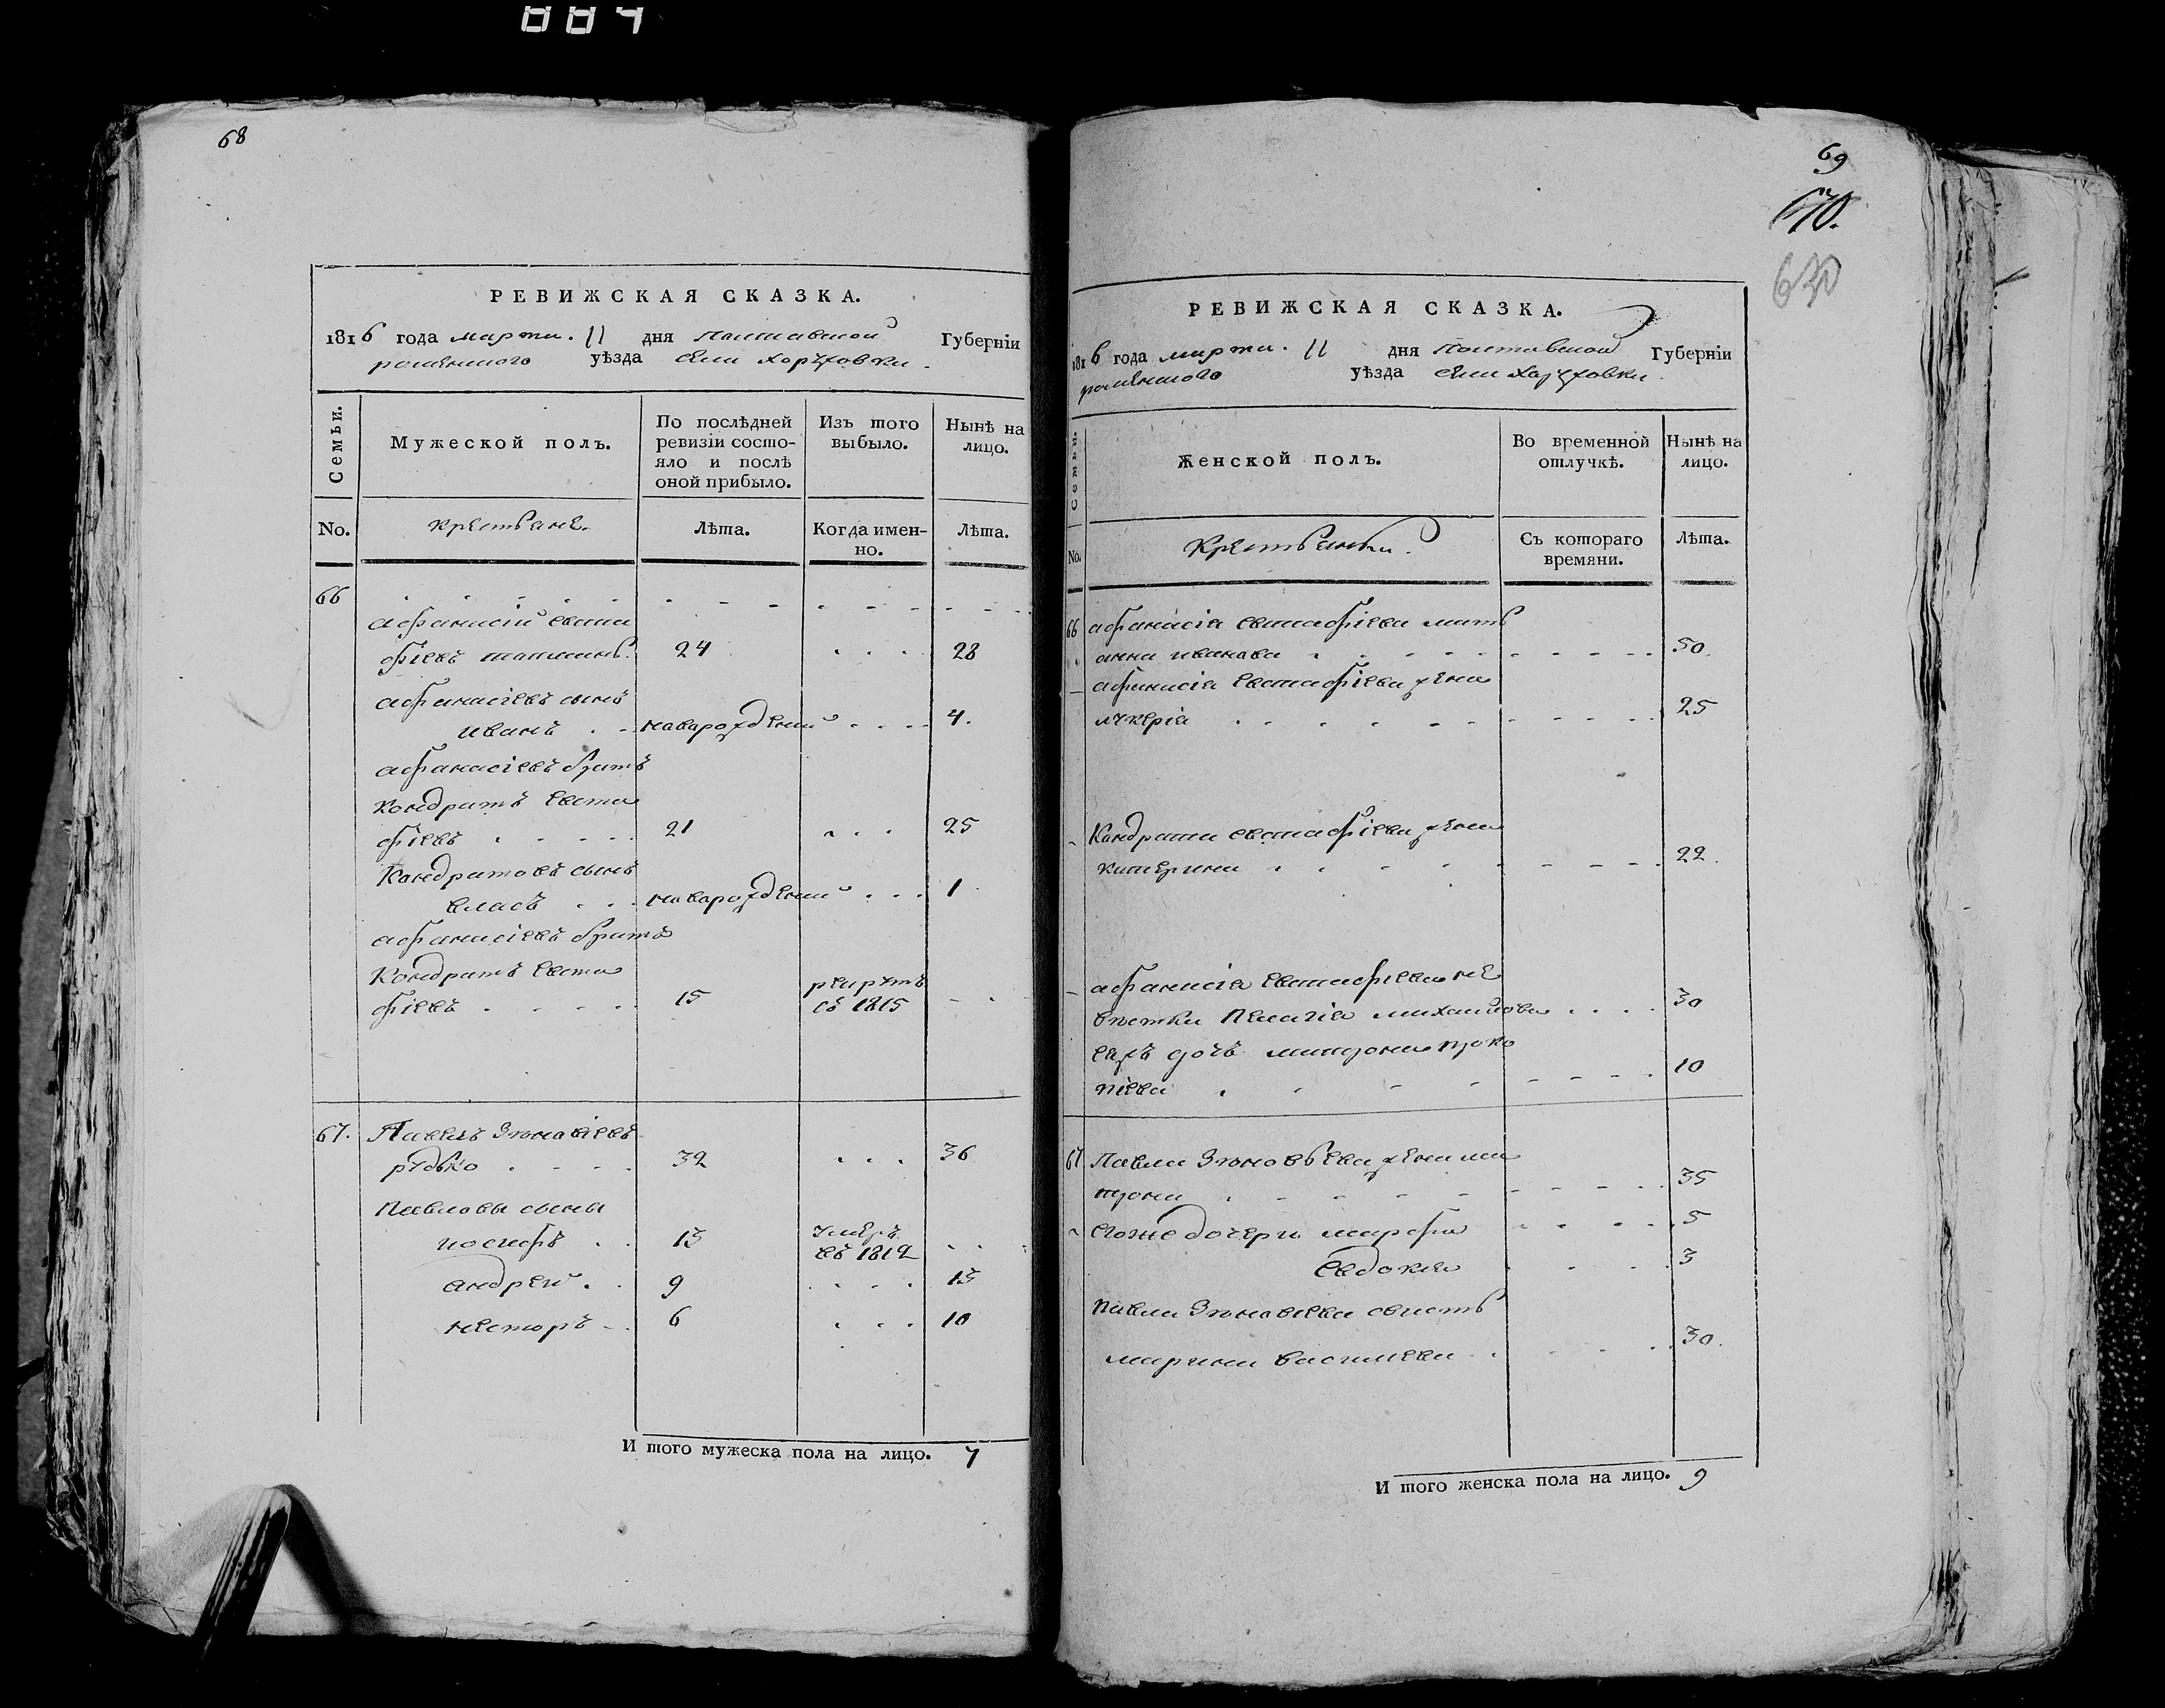 884
68
РЕВИЖСКАЯ СКАЗКА.
1816 года марта. 11 дня Полтавской Губерніи
роменского уѣзда села Хоружовки.
Семьи.
Мужеской полъ.
По послѣдней ревизіи состо-
яло и послѣ
оной прибыло.
Изъ того
выбыло.
Нынѣ на
лицо.
No.
крестьяне.
Лѣта.
Когда имен-
но.
Лѣта.
66
афанасій евста
фіевъ 24 28
афанасіевъ сынъ
иванъ новорожденій 4.
афанасіевъ братъ
Кондратъ Евста
фіевъ 21 25
Кондратовъ сынъ
власъ новорожденій 1
афанасіевъ братъ
Кондратъ Евста
фіевъ 15 рекрутъ
съ 1815
67. Павелъ Зѣновіевъ
рудько 32 36
Павловы сыны
иосифъ 13 умеръ
въ 1812
андрей 9 13
несторъ 6 10
И того мужеска пола на лицо. 7
69
670.
630
РЕВИЖСКАЯ СКАЗКА.
1816 года марта. 11 дня Полтавской Губерніи
роменского уѣзда села Хоружовки.
Семьи.
Женской полъ.
Во временной
отлучкѣ.
Нынѣ на
лицо.
No.
Крестьянки.
Съ котораго
времяни.
Лѣта.
66 афанасія евстафіева мать
анна иванова 50.
афанасія Евстафіева жена
лукерія 25
Кондрата евстафіева жена
катерина 22.
афанасія Евстафіева не
вѣстка Пелагія михайлова 30
еяжъ дочь матрона проко
піева 10
67 Павла Зѣновьева жена ма
трона 35
Егоже дочери марфа 5
Евдокия 3
Павла Зѣновіева свисть
марина василиева 30.
И того женска пола на лицо. 9